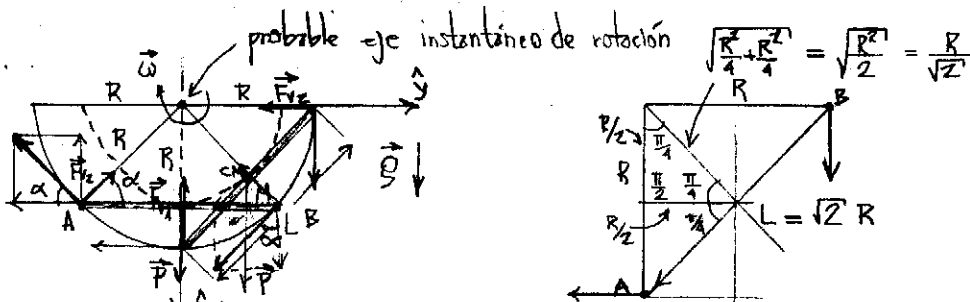 probable eje instantáneo de rotación
√(R²/4 + R²/4) = √(R²/2) = R/√2
ω⃗
R R F⃗ᵥ₂ ŷ
R R
α
α
A
C
L B
g⃗
P⃗
P⃗
R
B
R/2
π/4
R
π/2
π/4
π/4
L = √2 R
R/2
A